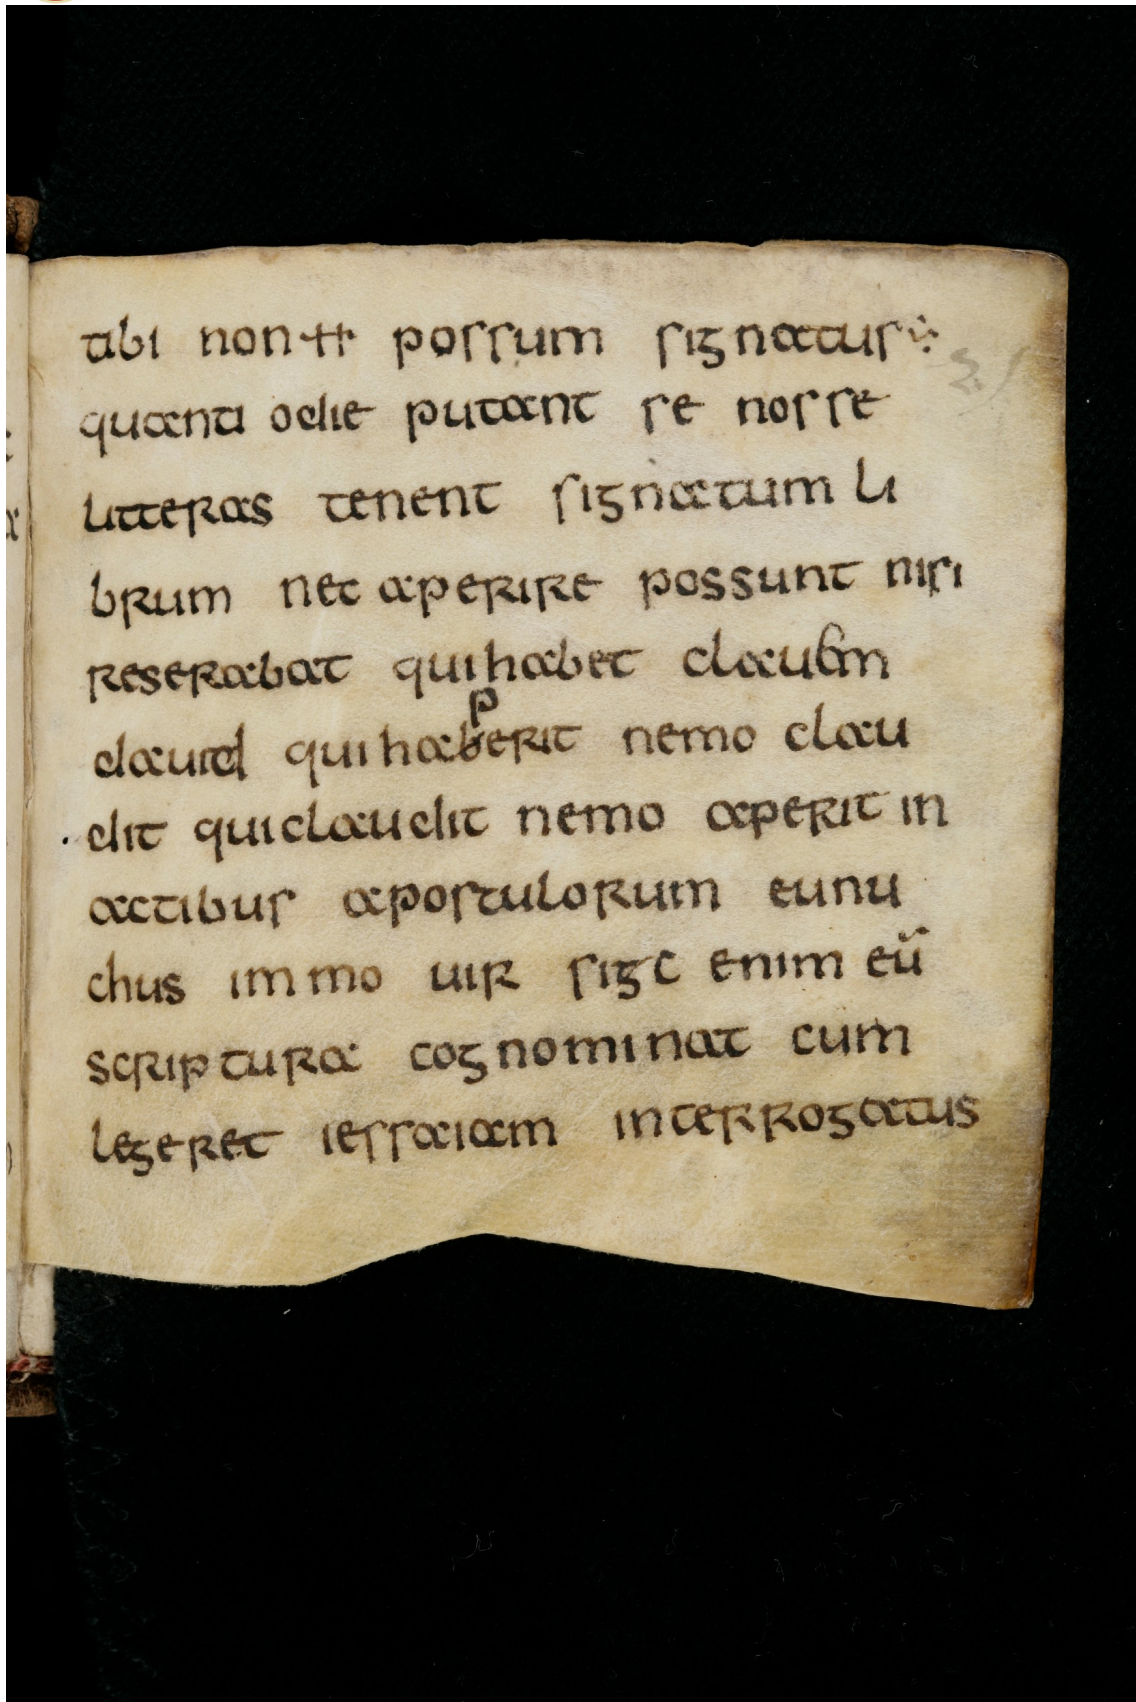 tibi non ħ possum signatus÷
quanti odie putant se nosse
litteras tenent signatum li
brum nec aperire possunt nisi
reserabat qui habet claubm
dauid qui haperit nemo clau
dit qui claudit nemo aperit in
actibus apostulorum eunu
chus immo uir sigc enim eū
scriptura cognominat cum
legeret iessaiam interrogatus